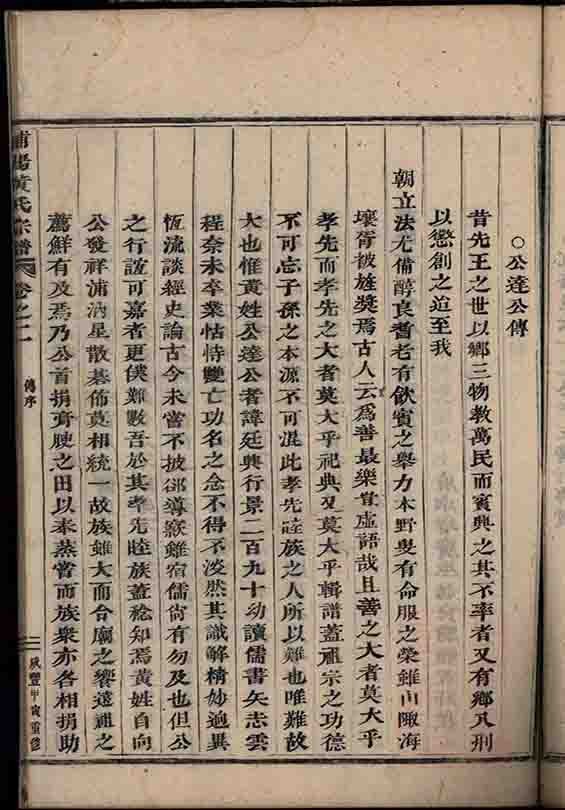 ○公達公傳
昔先王之世以鄉三物教萬民而賓興之其不率者又有鄉八刑
以懲創之迨至我
朝立法尤備醇良耆老有飲賓之舉力本野叟有命服之榮雖山陬海
壤胥被旌獎焉古人云為善最樂豈虛語哉且善之大者莫大乎
孝先而孝先之大者莫大乎祀典又莫大乎輯譜蓋祖宗之功德
不可忘子孫之本源不可混此孝先睦族之人所以難也唯難故
大也惟黃姓公達公者諱廷興行景二百九十幼讀儒書矢志雲
程奈未卒業怙恃雙亡功名之念不得不淡然其識解精妙逈異
恆流談經史論古今未嘗不披郤導窾雖宿儒尚有勿及也但公
之行誼可嘉者更僕難數吾於其孝先睦族蓋稔知焉黃姓自向
公發祥浦汭星散碁佈莫相統一故族雖大而合廟之饗遠祖之
薦鮮有及焉乃公首捐膏腴之田以奉蒸嘗而族衆亦各相捐助
浦陽黃氏宗譜 卷之二 傳序 三 咸豐甲寅重修